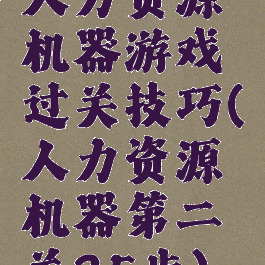 人力资源
机器游戏
过关技巧(
人力资源
机器第二
关25步)